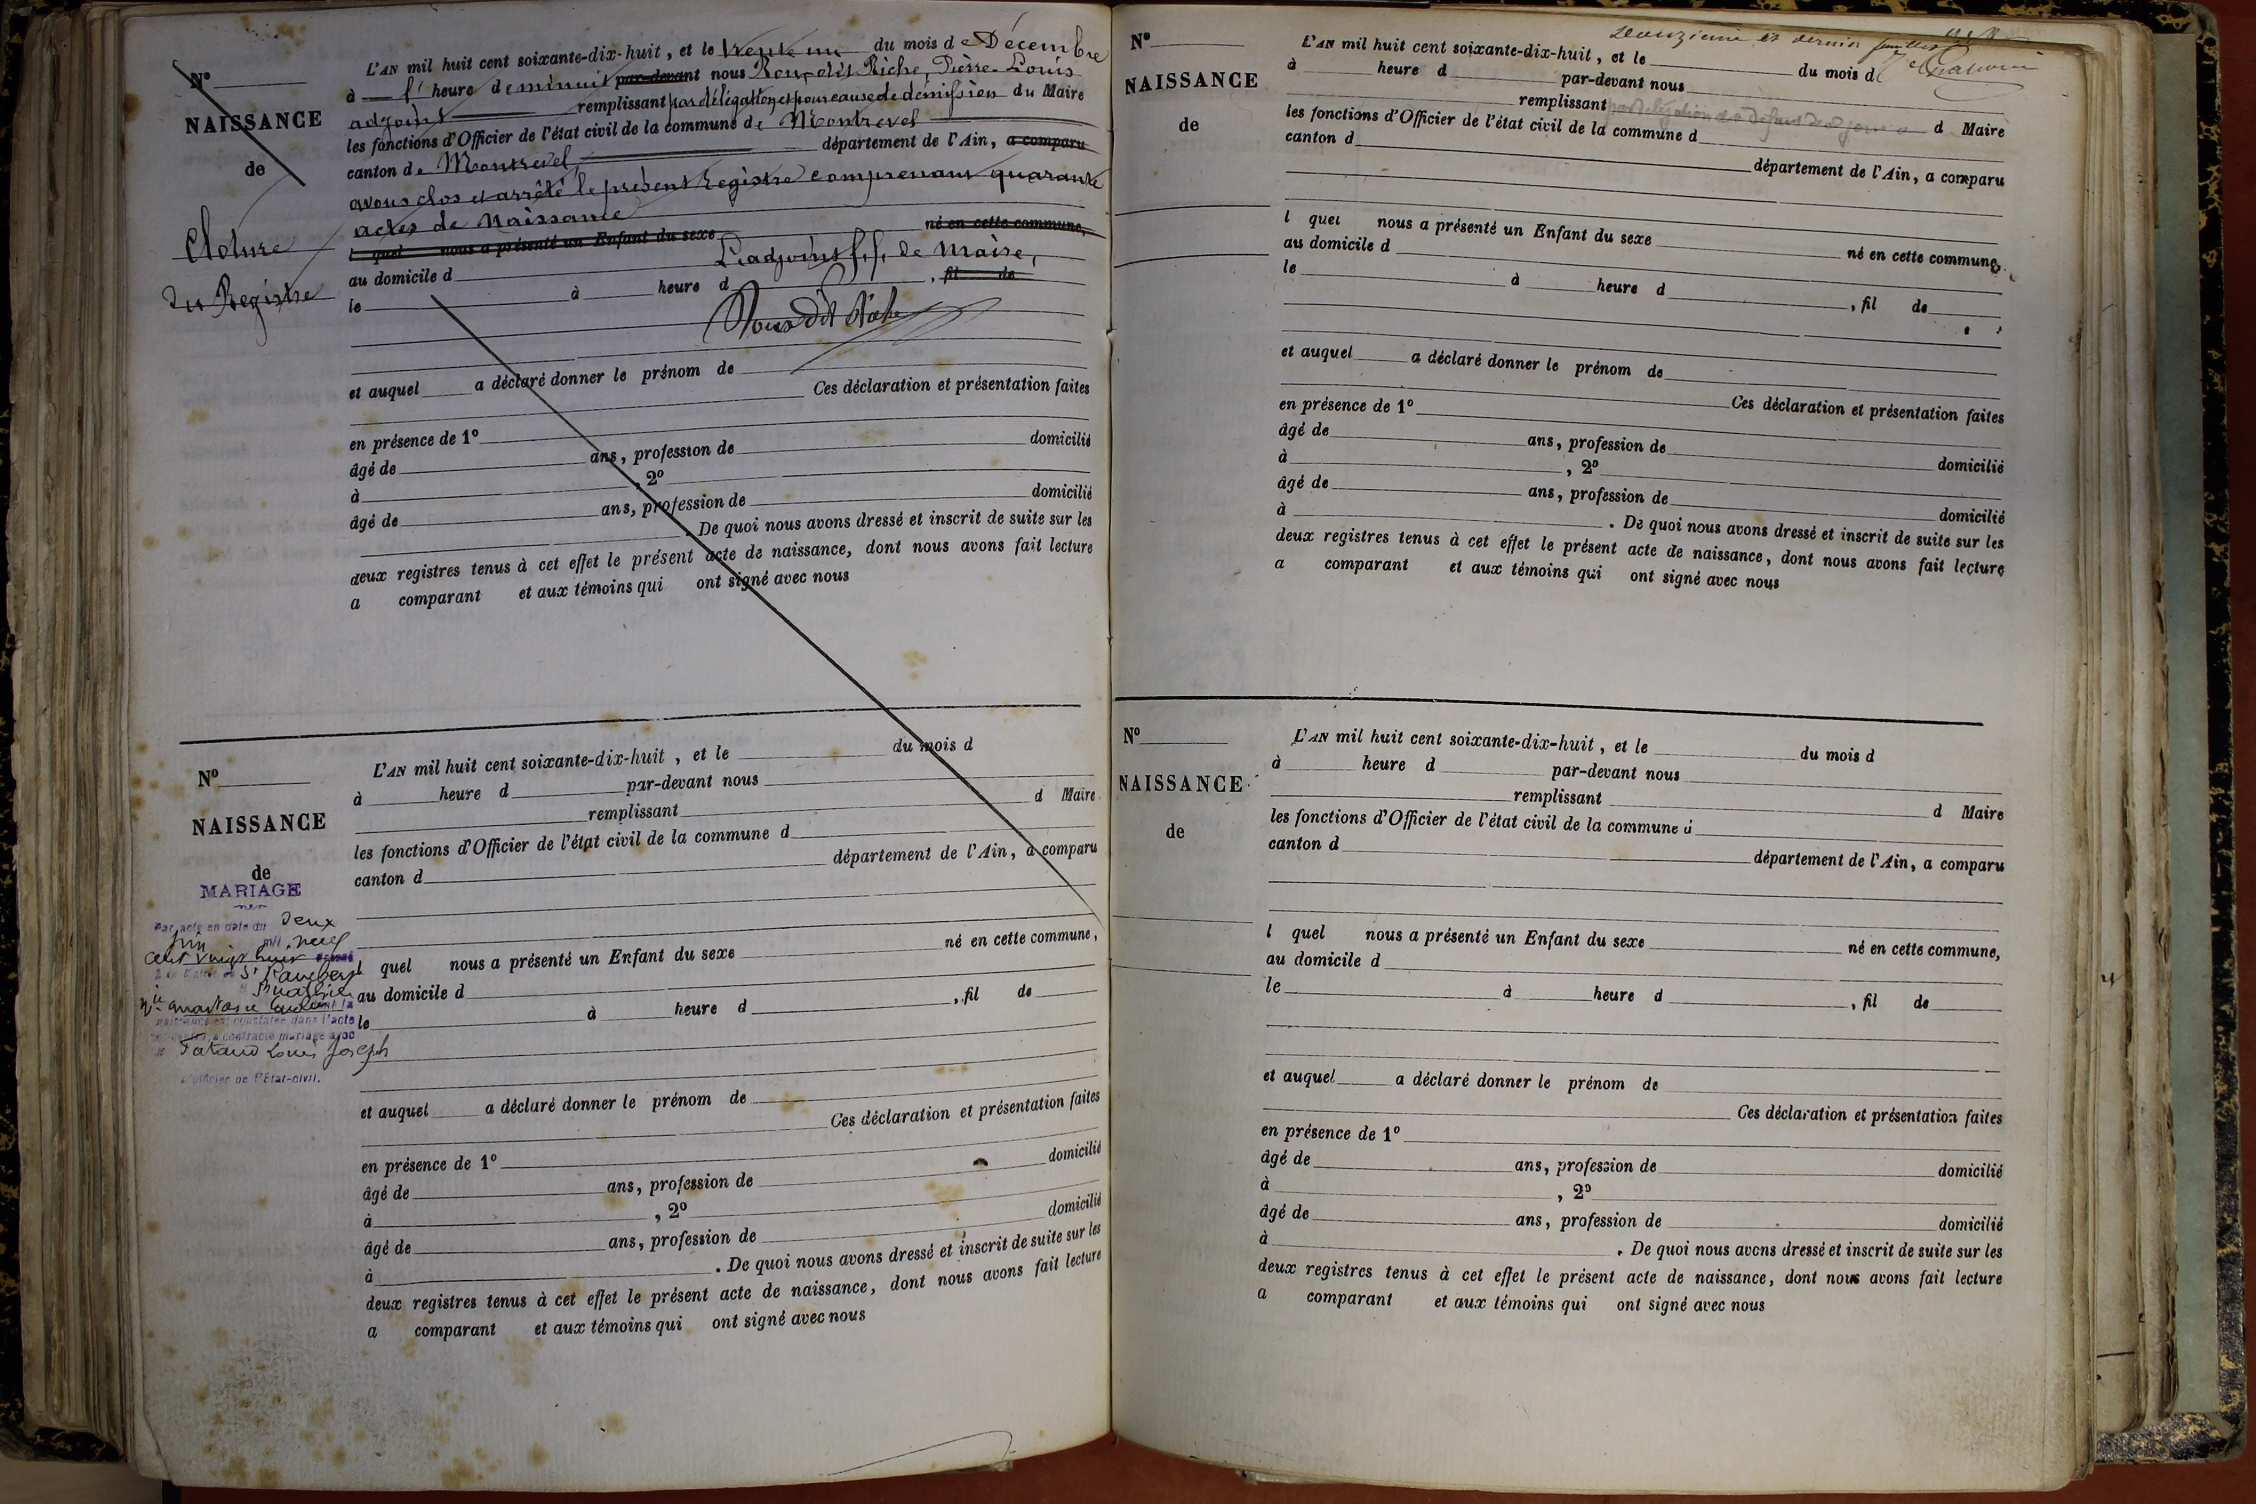 L'AN mil huit cent soixante-dix-huit, et le trente un du mois de Décembre
N°
à l' heure de minuit par-devant nous Roux dit Riche, Pierre-Louis
adjoint remplissant par délégation et pour cause de démission du Maire
NAISSANCE
les fonctions d'Officier de l'état civil de la commune de Montrevel
de
canton de Montrevel, département de l'Ain, a comparu
avons clos et arrêté le présent registre comprenant quarante
actes de Naissance
Cloture
du Registre
l quel nous a présenté un Enfant du sexe né en cette commune,
au domicile d L'adjoint f.f. de Maire,
le à heure d , fil de
Roux dit Riche
et auquel a déclaré donner le prénom de
Ces déclaration et présentation faites
en présence de 1°
âgé de ans, profession de domicilié
à , 2°
âgé de ans, profession de domicilié
. De quoi nous avons dressé et inscrit de suite sur les
deux registres tenus à cet effet le présent acte de naissance, dont nous avons fait lecture
a comparant et aux témoins qui ont signé avec nous
N°
NAISSANCE
de
L'AN mil huit cent soixante-dix-huit, et le du mois d
à heure d par-devant nous
remplissant d Maire
les fonctions d'Officier de l'état civil de la commune d
canton d département de l'Ain, a comparu
MARIAGE
Par acte en date du Deux
juin mil neuf
cent vingt huit
St Rambert
la
naissance est constatée dans l'acte
a contracté mariage avec
Louis Joseph
L'Officier de l'État-civil.
l quel nous a présenté un Enfant du sexe né en cette commune,
au domicile d
le à heure d , fil de
et auquel a déclaré donner le prénom de
Ces déclaration et présentation faites
en présence de 1°
âgé de ans, profession de domicilié
à , 2°
âgé de ans, profession de domicilié
à . De quoi nous avons dressé et inscrit de suite sur les
deux registres tenus à cet effet le présent acte de naissance, dont nous avons fait lecture
a comparant et aux témoins qui ont signé avec nous
Douzième et dernier feuillet
N°
NAISSANCE
de
L'AN mil huit cent soixante-dix-huit, et le du mois d
à heure d par-devant nous
remplissant d Maire
les fonctions d'Officier de l'état civil de la commune d
canton d département de l'Ain, a comparu
l quel nous a présenté un Enfant du sexe né en cette commune,
au domicile d
le à heure d , fil de
et auquel a déclaré donner le prénom de
Ces déclaration et présentation faites
en présence de 1°
âgé de ans, profession de domicilié
à , 2°
âgé de ans, profession de domicilié
à . De quoi nous avons dressé et inscrit de suite sur les
deux registres tenus à cet effet le présent acte de naissance, dont nous avons fait lecture
a comparant et aux témoins qui ont signé avec nous
N°
NAISSANCE
de
L'AN mil huit cent soixante-dix-huit, et le du mois d
à heure d par-devant nous
remplissant d Maire
les fonctions d'Officier de l'état civil de la commune d
canton d département de l'Ain, a comparu
l quel nous a présenté un Enfant du sexe né en cette commune,
au domicile d
le à heure d , fil de
et auquel a déclaré donner le prénom de
Ces déclaration et présentation faites
en présence de 1°
âgé de ans, profession de domicilié
à , 2°
âgé de ans, profession de domicilié
à . De quoi nous avons dressé et inscrit de suite sur les
deux registres tenus à cet effet le présent acte de naissance, dont nous avons fait lecture
a comparant et aux témoins qui ont signé avec nous